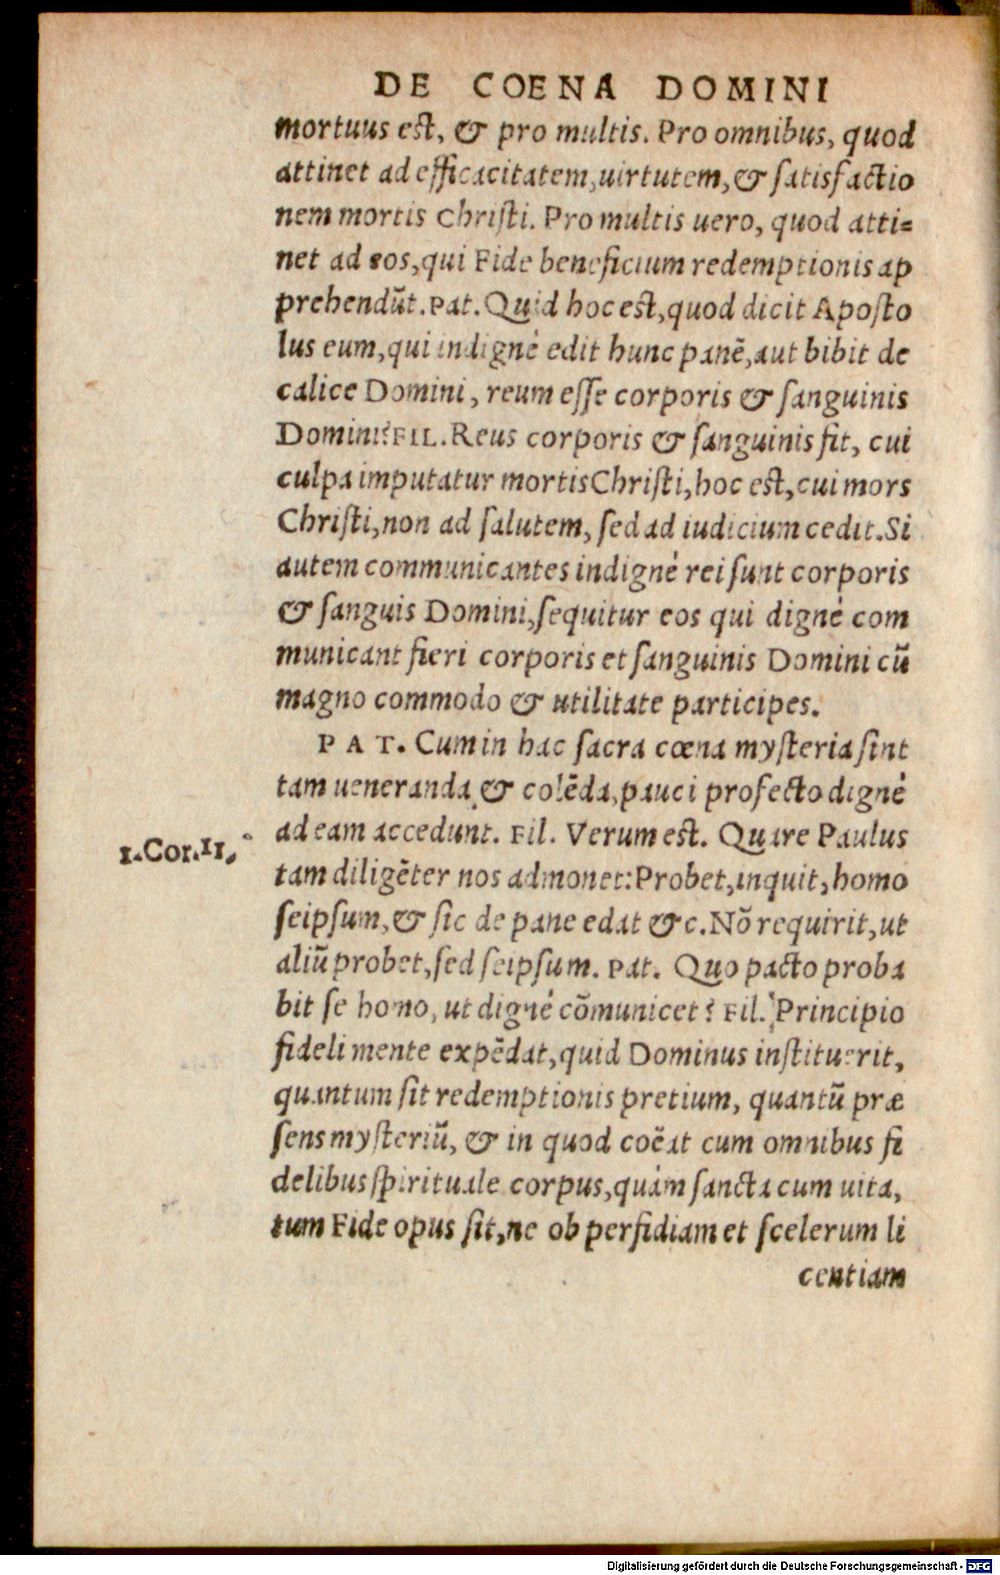 DE COENA DOMINI
mortuus est, & pro multis. Pro omnibus, quod
attinet ad efficacitatem, uirtutem, & satisfactio
nem mortis Christi. Pro multis uero, quod atti=
net ad eos, qui Fide beneficium redemptionis ap
prehendũt. Pat. Quid hoc est, quod dicit Aposto
lus eum, qui indignè edit hunc panẽ, aut bibit de
calice Domini, reum esse corporis & sanguinis
Domini? FIL. Reus corporis & sanguinis fit, cui
culpa imputatur mortis Christi, hoc est, cui mors
Christi, non ad salutem, sed ad iudicium cedit. Si
autem communicantes indignè rei sunt corporis
& sanguis Domini, sequitur eos qui dignè com
municant fieri corporis et sanguinis Domini cũ
magno commodo & utilitate participes.
PAT. Cum in hac sacra cœna mysteria sint
tam ueneranda & colẽda, pauci profecto dignè
ad eam accedunt. Fil. Verum est. Quare Paulus
1. Cor. 11.
tam diligẽter nos admonet: Probet, inquit, homo
seipsum, & sic de pane edat &c. Nõ requirit, ut
aliũ probet, sed seipsum. Pat. Quo pacto proba
bit se homo, ut dignè cõmunicet? Fil. Principio
fideli mente expẽdat, quid Dominus instituerit,
quantum sit redemptionis pretium, quantũ præ
sens mysteriũ, & in quod coẽat cum omnibus fi
delibus spirituale corpus, quàm sancta cum uita,
tum Fide opus sit, ne ob perfidiam et scelerum li
centiam
Digitalisierung gefördert durch die Deutsche Forschungsgemeinschaft - DFG